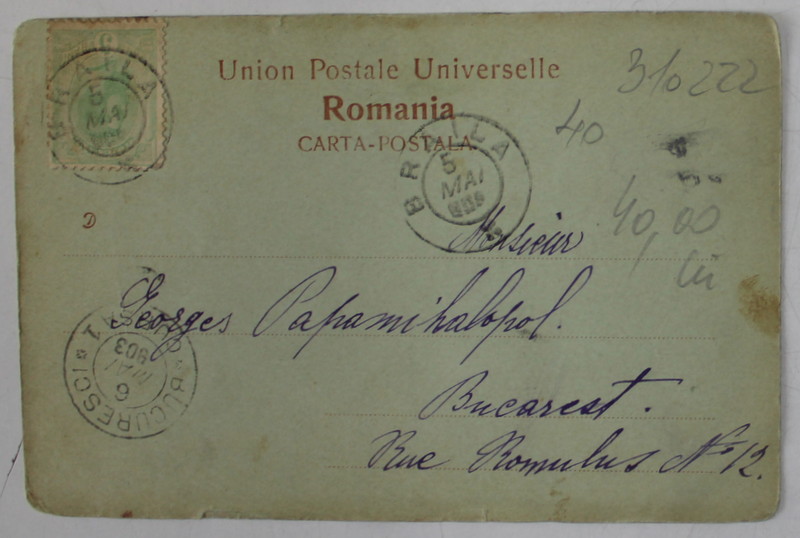 Union Postale Universelle
Romania
CARTA-POSTALA
310222
40
40,00
lei
BRAILA
5
MAI
BRAILA
5
MAI
D
Monsieur
Georges Papamihalopol.
Bucarest.
Rue Romulus No 12.
BUCURESCI
6
MAI
903